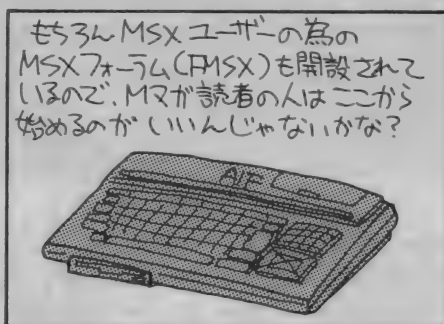 もちろんMSXユーザーの為の
MSXフォーラム(FMSX)も開設されて
いるので、Mマガ読者の人はここから
始めるのがいいんじゃないかな?
A1F